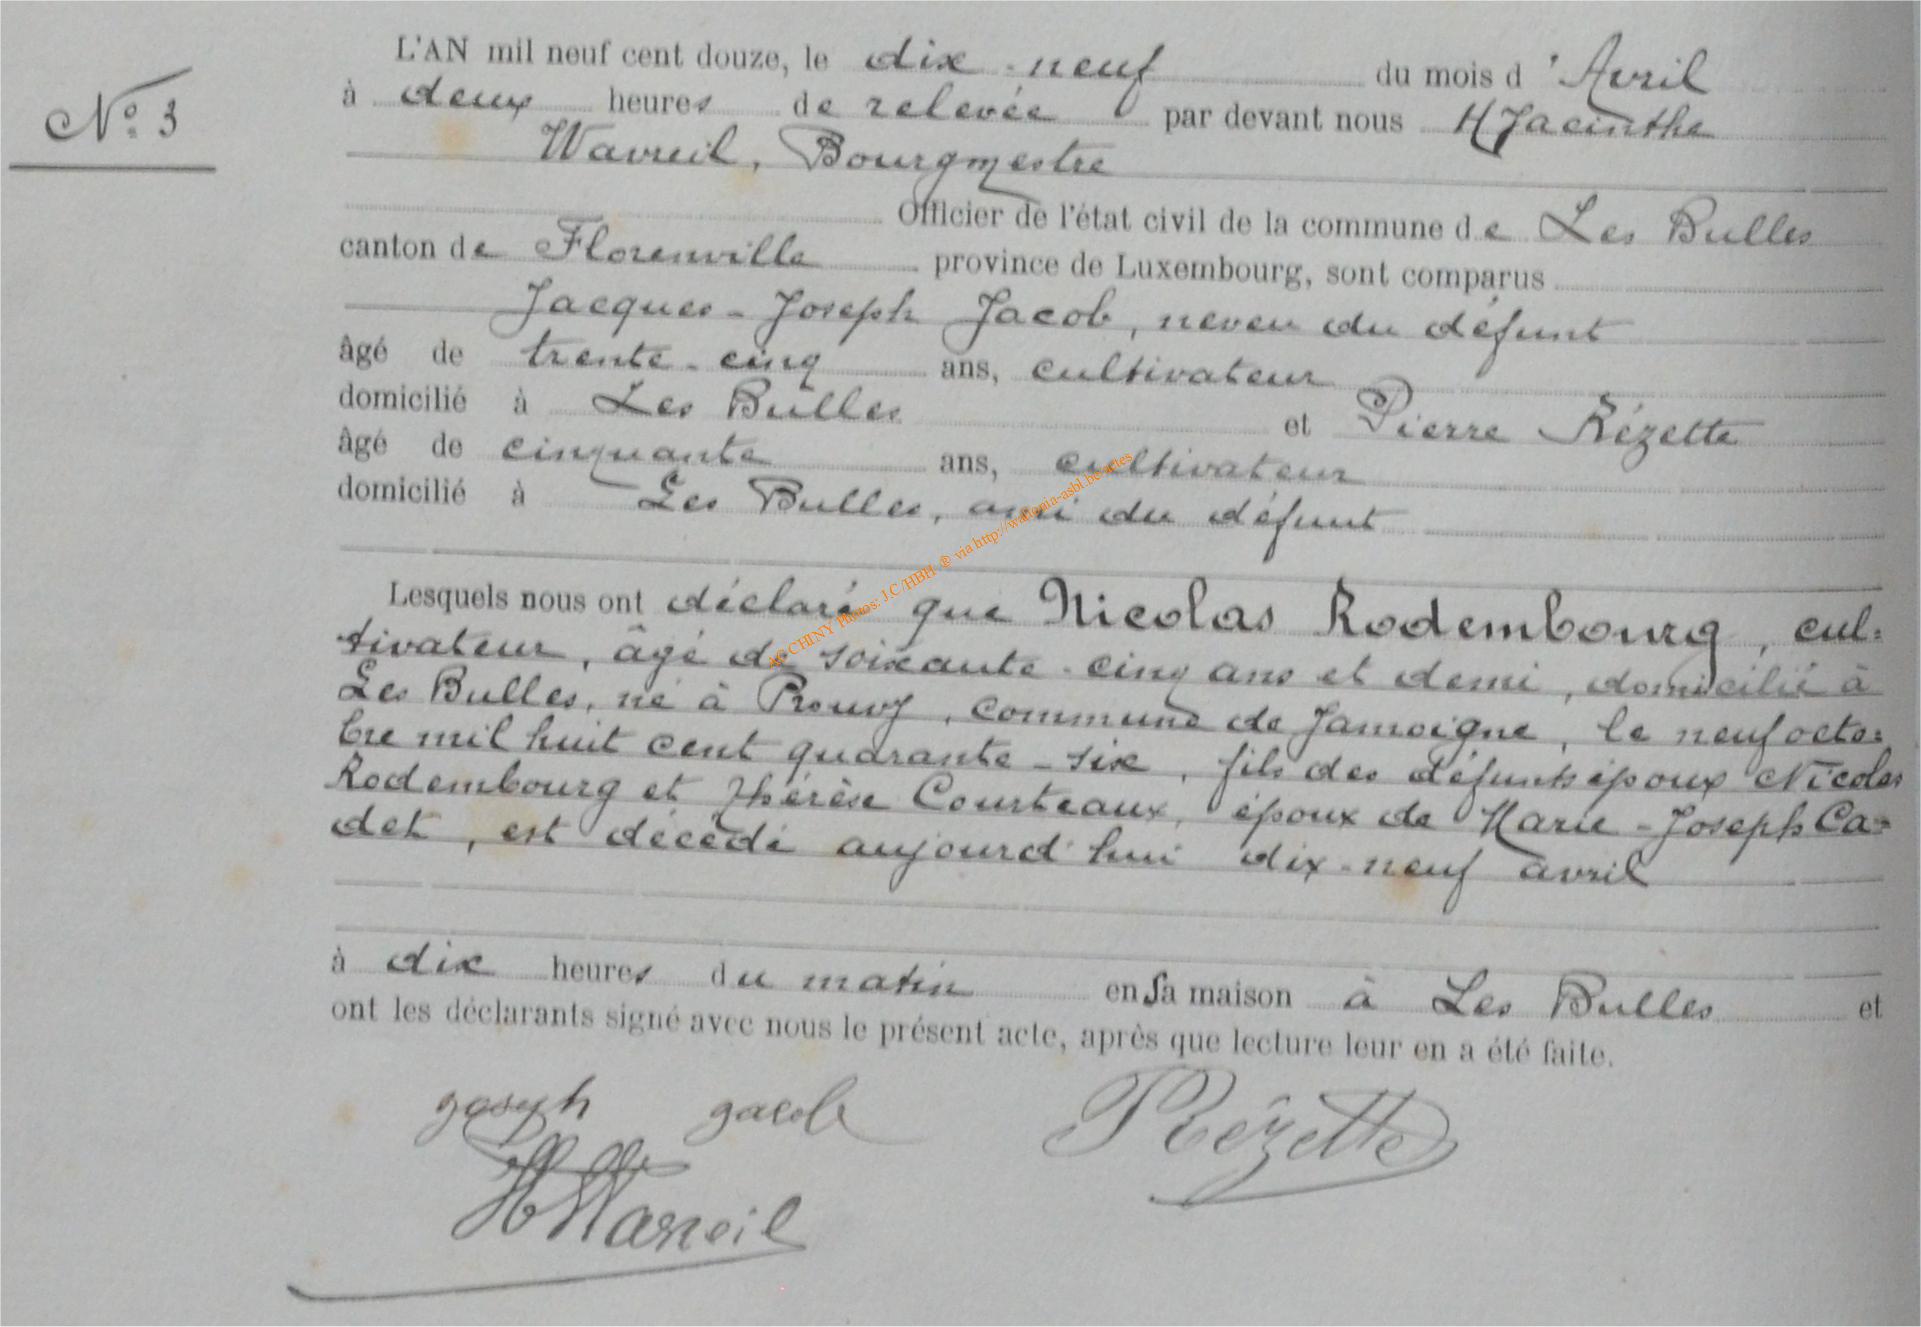 L'AN mil neuf cent douze, le dix-neuf du mois d'Avril
N° 3
à deux heures de relevée par devant nous Hyacinthe
Wavreil, Bourgmestre
Officier de l'état civil de la commune de Les Bulles
canton de Florenville province de Luxembourg, sont comparus
Jacques-Joseph Jacob, neveu du défunt
âgé de trente-cinq ans, cultivateur
domicilié à Les Bulles et Pierre Rézette
âgé de cinquante ans, cultivateur
domicilié à Les Bulles, ami du défunt
AC CHINY Photos: J.C/HBH ® via http://wallonia-asbl.be-actes
Lesquels nous ont déclaré que Nicolas Rodembourg, cul=
tivateur, âgé de soixante-cinq ans et demi, domicilié à
Les Bulles, né à Prouvy, commune de Jamoigne, le neuf octo=
bre mil huit cent quarante-six, fils des défunts époux Nicolas
Rodembourg et Thérèse Courteaux, époux de Marie-Joseph Ca=
det, est décédé aujourd'hui dix-neuf avril
à dix heures du matin en sa maison à Les Bulles et
ont les déclarants signé avec nous le présent acte, après que lecture leur en a été faite.
joseph jacob Rézette
H Wavreil